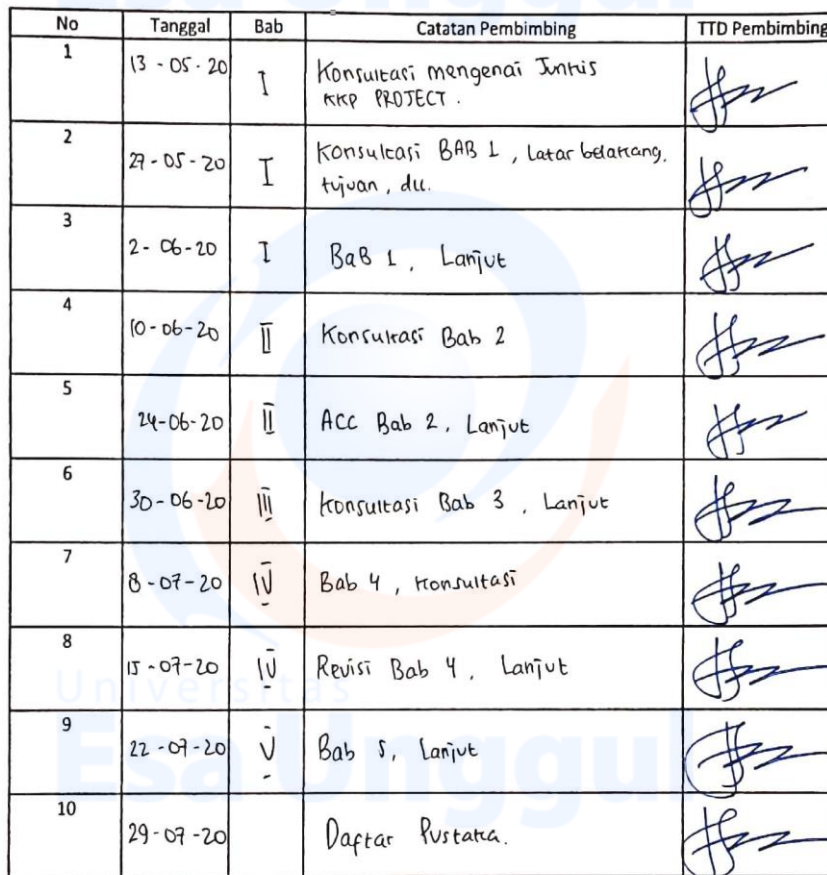 No Tanggal Bab Catatan Pembimbing TTD Pembimbing
1 13 - 05 - 20 I Konsultasi mengenai Juknis
KKP PROJECT.
2 27 - 05 - 20 I Konsultasi BAB 1, Latar belakang,
tujuan, dll.
3 2 - 06 - 20 I BaB 1, Lanjut
4 10 - 06 - 20 II Konsultasi Bab 2
5 24 - 06 - 20 II ACC Bab 2, Lanjut
6 30 - 06 - 20 III Konsultasi Bab 3, Lanjut
7 8 - 07 - 20 IV Bab 4, Konsultasi
8 15 - 07 - 20 IV Revisi Bab 4, Lanjut
Universitas
9 22 - 07 - 20 V Bab 5, Lanjut
Esa Unggul
10 29 - 07 - 20 Daftar Pustaka.